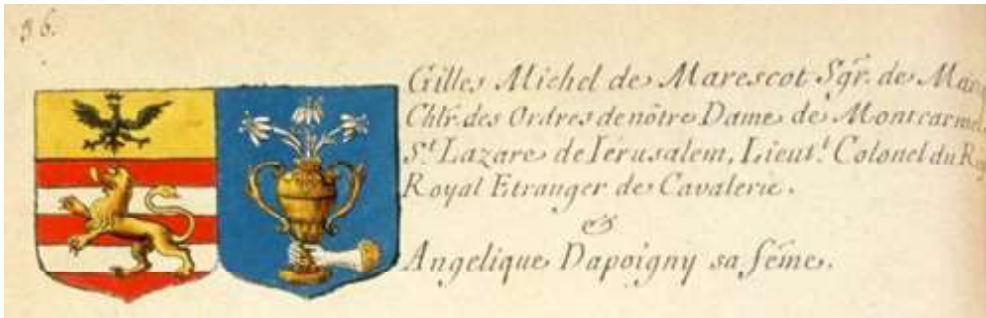 36.
Gilles Michel de Marescot Sgr. de
Chlr. des Ordres de nôtre Dame de Montcarmel,
St. Lazare de Jérusalem, Lieut.t Colonel du
Royal Etranger de Cavalerie.
&
Angelique Dapoigny sa féme.